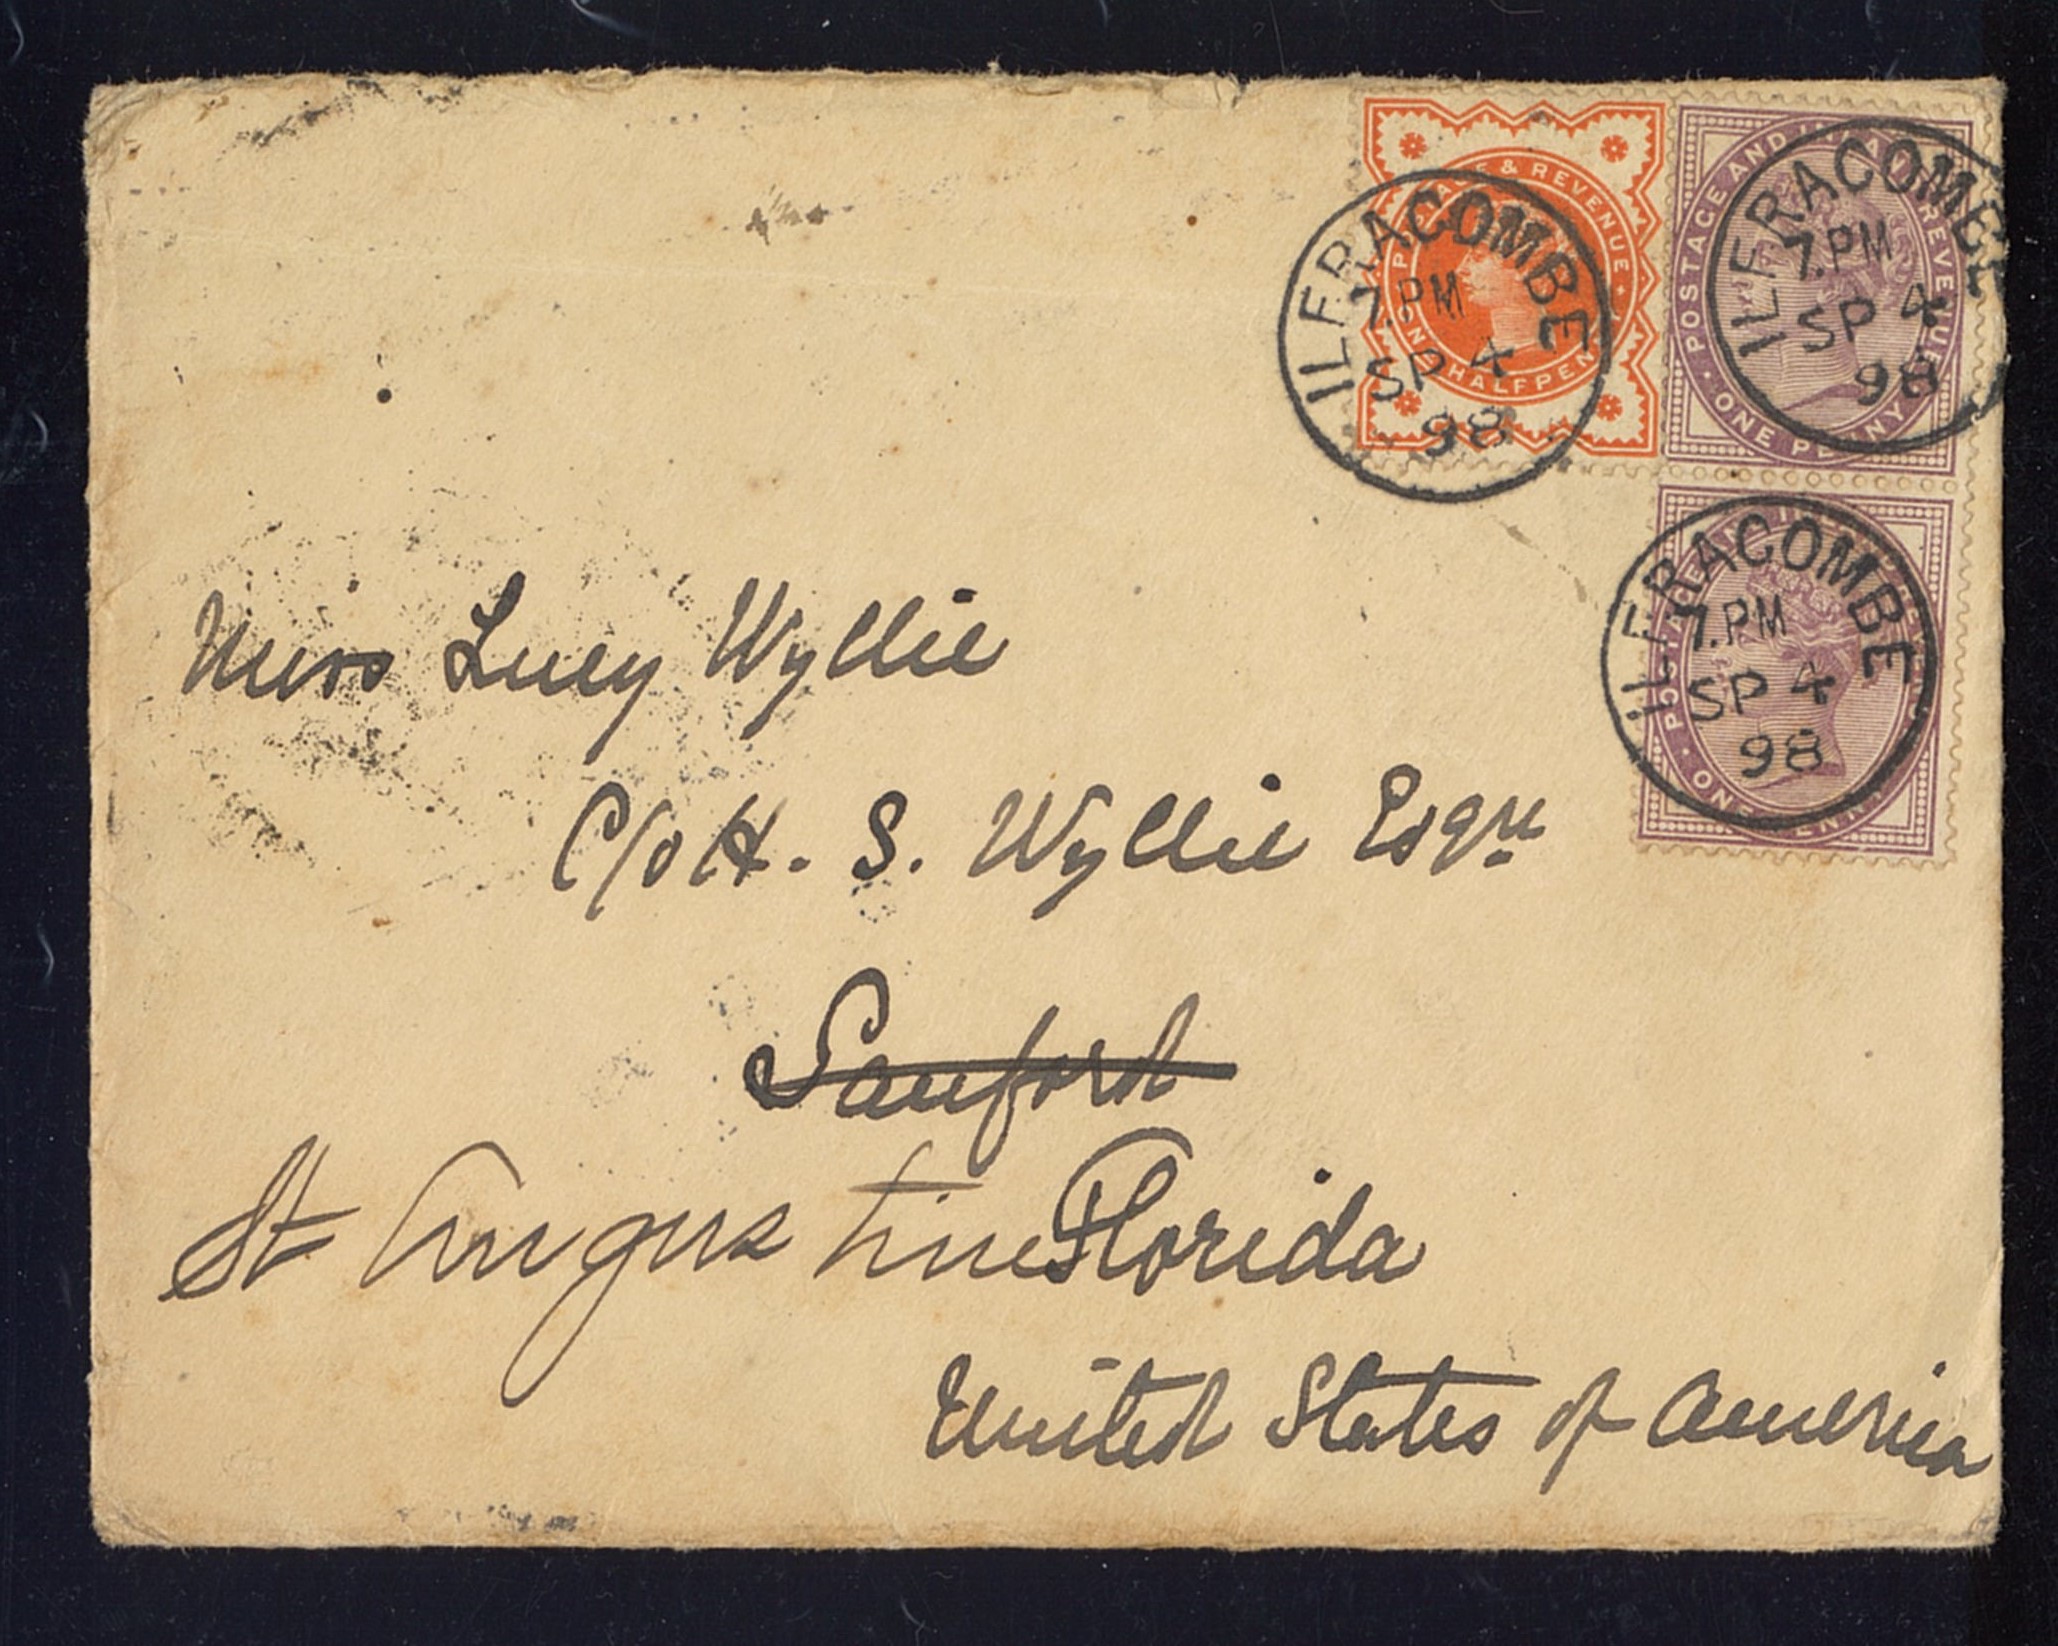 POSTAGE & REVENUE
HALFPEN
ILFRACOMBE
7.PM
SP 4
98
POSTAGE AND REVENUE
ONE PENNY
ILFRACOMBE
7.PM
SP 4
98
ILFRACOMBE
7.PM
SP 4
98
Miss Lucy Wyllie
C/o H. S. Wyllie Esqre
Sanford
St Augustine Florida
United States of America